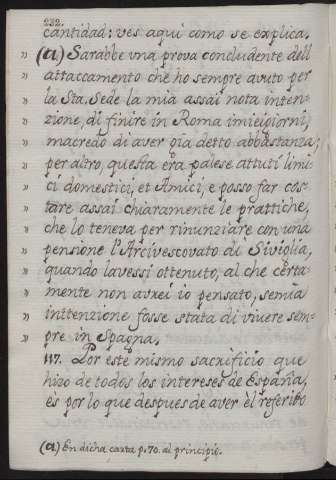 232.
cantidad: ves aqui como se explica.
(a) Sarabbe una prova concludente dell
" attaccamento che ho sempre avuto per
" la Sta. Sede la mia assai nota inten-
" zione, di finire in Roma imieigiorni,
" macredo di aver gia detto abbastanza;
" per altro, questa era palese attuti limi-
" ci domestici, et Amici, e posso far cos-
" tare assai chiaramente le prattiche,
" che lo teneva per rinunziare con una
" pensione l'Arcivescovato di Siviglia,
" quando lavessi ottenuto, al che certa-
" mente non avrei io pensato, semia
" inttenzione fosse stata di vivere sem-
" pre in Spagna.
117. Por este mismo sacrificio que
hizo de todos los intereses de España,
es por lo que despues de aver el referido
(a) En dicha carta p. 70. al principio.